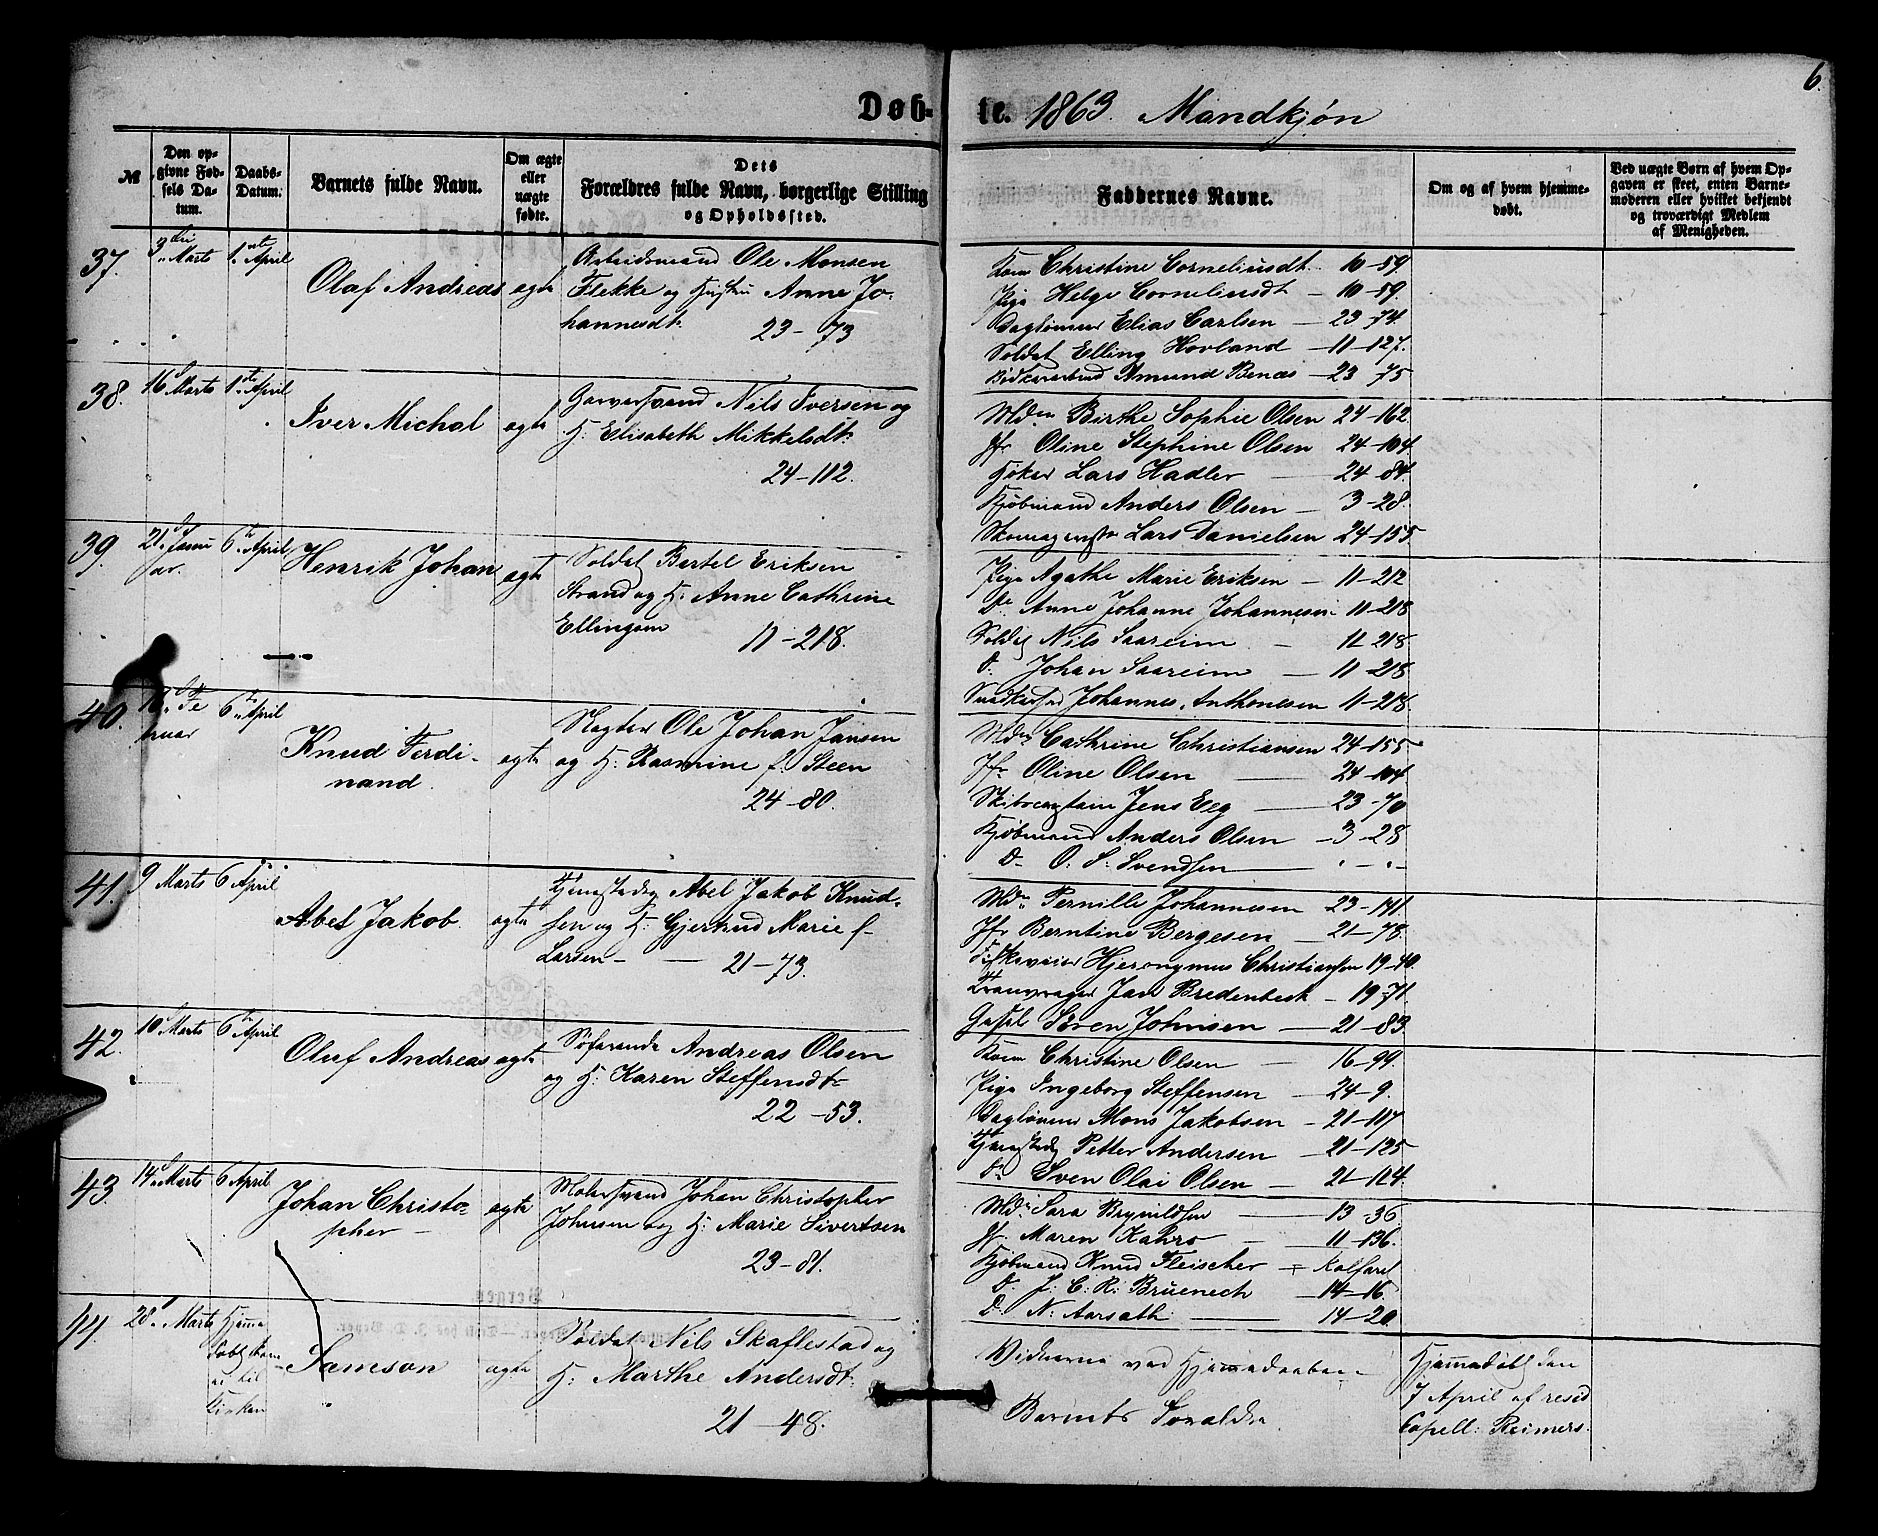 6.
Døb-te. 1863. Mandkjøn
№
Den op-
givne Fød-
sels Da-
tum.
Daabs-
Datum.
Barnets fulde Navn.
Om ægte
eller
uægte
fødte.
Dets
Forældres fulde Navn, borgerlige Stilling
og Opholdssted.
Faddernes Navne.
Om og af hvem hjemme-
døbt.
Ved uægte Børn af hvem Op-
gaven er skeet, enten Barne-
moderen eller hvilket bekjendt
og troværdigt Medlem
af Menigheden.
37.
3die Marts
1ste April
Olaf Andreas
ægte
Arbeidsmand Ole Monsen
Flekke og Hustru Anne Jo-
hannesdt. 23-73
Kone Christine Corneliusdt. 10-59
Pige Helge Corneliusdt - 10-59.
Daglønner Elias Carlsen - 23-74.
Soldat Elling Hovland - 11-127.
Amund Benæs - 23-75
38.
16 Marts
1ste April
Iver Michal
ægte
Garversvend Nils Iversen og
H: Elisabeth Mikkelsdt:
24-112.
Md. Birthe Sophie Olsen 24-162
Jfr Oline Stephine Olsen 24-104.
Høker Lars Hadler - 24-84.
Kjøbmand Anders Olsen - 3-28.
Skomagermstr Lars Danielsen 24-155
39.
21. Janu
ar.
6te April
Henrik Johan
ægte
Soldat Bertel Eriksen
Strand og H: Anne Cathrine
Ellingsen 11-218.
Pige Agathe Marie Eriksen - 11-212
Do Anne Johanne Johannesen 11-218
Soldat Nils Saareim - 11-218.
D. Johan Saareim - 11-218
Snedkersvd Johannes Anthonesen 11-218
40.
18. Fe
bruar
6te April
Knud Ferdi-
nand.
ægte
Slagter Ole Johan Jansen
og H: Rasmine f. Steen
24-80.
Md. Cathrine Christiansen 24-155
Jfr Oline Olsen - 24-104
Skibscaptain Jens Eeg - 23-70
Kjøbmand Anders Olsen - 3-28
D. O. S. Svendsen - . - . -
41.
9 Marts
6 April
Abel Jakob.
ægte
Abel Jakob Knud-
sen og H: Gjertrud Marie f.
Larsen - - 21-73.
Md. Pernille Johannesen 23-141.
Jfr Berntine Bergesen - 21-78.
Hjeronymus Christiansen 19-40.
Jan Bredenbeck - 19-71.
Søren Johnsen - 21-83.
42.
10 Marts
6te April
Oluf Andreas
ægte
Søfarende Andreas Olsen
og H: Karen Steffensdt:
22-53.
Kone Christine Olsen - 16-99.
Pige Ingeborg Steffensen - 24-9.
Daglønner Mons Jakobsen - 21-117
Petter Andersen - 21-125
Do Sven Olai Olsen - 21-124.
43.
14. Marts
6 April
Johan Christo-
pher -
ægte
Malersvend Johan Christopher
Johnsen og H: Marie Sivertsen
23-81.
Md. Sara Brynildsen - 13-36.
Jfr Maren Kahrs - 11-136.
Kjøbmand Knud Fleischer - Kalfaret
D. J. C. R. Bruenech - 14-16.
D. N. Aarsæth. - 14-20
44.
28. Marts
Hjemme
døbt, kom
ei til
Kirken
Samson
ægte
Soldat Nils Skaflestad og
H: Marthe Andersdt:
21-48.
Vidnerne ved Hjemmedaaben
Barnets Forældre.
Hjemmedøbt den
7 April af resid
Capell: Reimers.